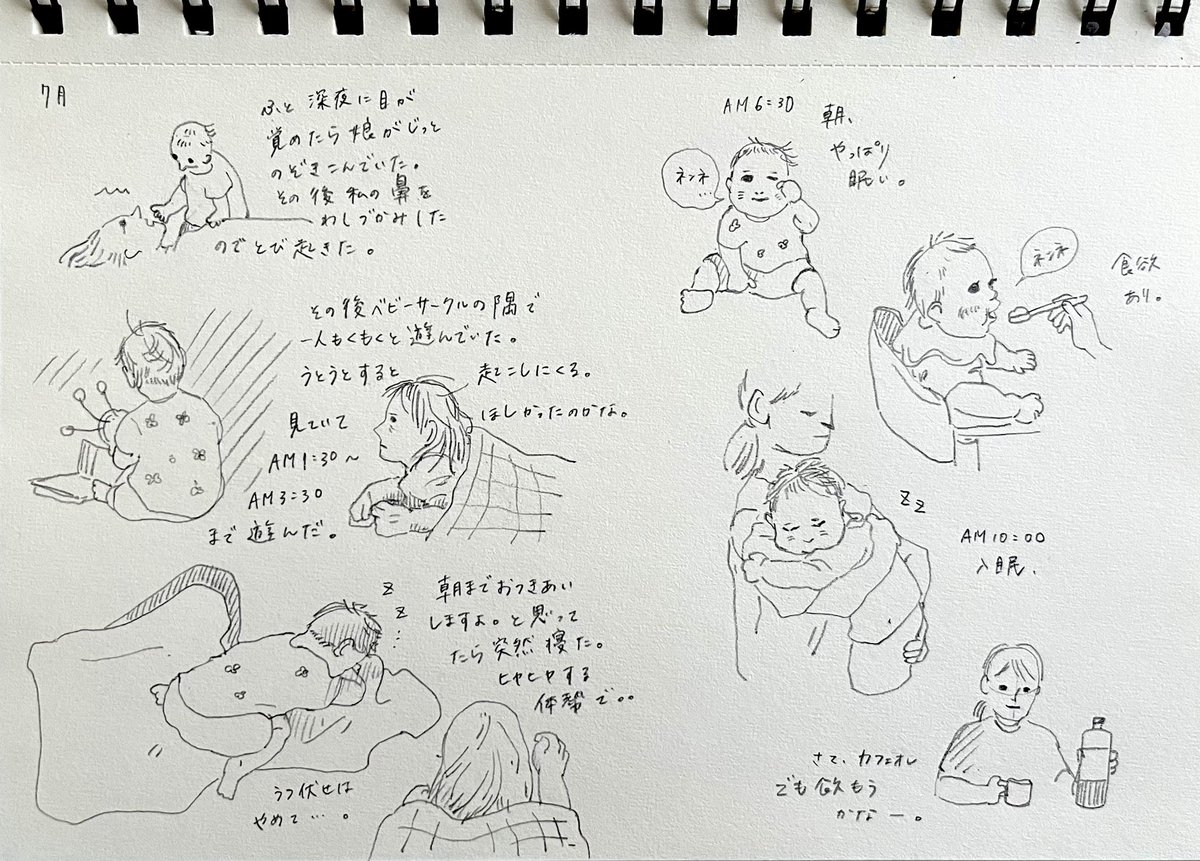 7月
ふと 深夜に目が
覚めたら 娘がじっと
のぞきこんでいた。
その後 私の鼻を
わしづかみした
のでとび起きた。
その後ベビーサークルの隅で
一人もくもくと遊んでいた。
うとうとすると 起こしにくる。
見ていて ほしかったのかな。
AM1:30～
AM3:30
まで遊んだ。
z
z
朝までおつきあい
しますよ。と思って
たら突然寝た。
ヒヤヒヤする
体勢で。。
うつ伏せは
やめて…。
AM6:30
朝、
やっぱり
眠い。
ネンネ
…
ネンネ
食欲
あり。
z z
AM10:00
入眠、
さて、カフェオレ
でも飲もう
かなー。